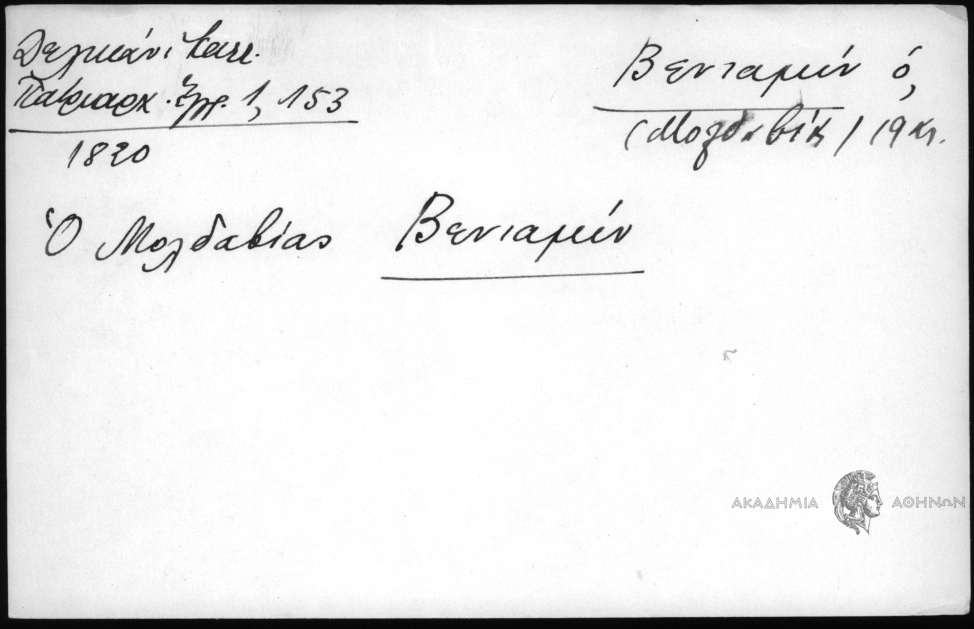 Δελικάνι Καλλ.
Πατριαρχ. Ἔγγρ. 1, 153
1820
Βενιαμὶν ὁ,
(Μολδαβίας) 19 αι.
Ὁ Μολδαβίας Βενιαμὶν
ΑΚΑΔΗΜΙΑ ΑΘΗΝΩΝ